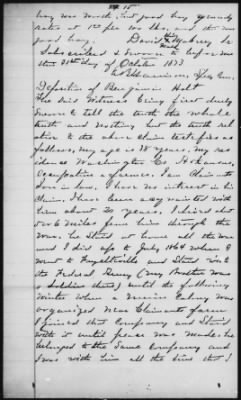 15
hay one month, and good hay
acter at 1 per lbs, and the
good hay. David his mark
Subscribed & sworn to before me
this 21st day of October 1873
Spec Com.
Deposition of Benjamin Holt
The said witness being first duly
sworn to tell the truth the whole
truth and nothing but the truth rel
ative to the above claim testifies as
follows, my age is 58 years, my res
idence Washington Co Arkansas,
Occupation a farmer. I am Claimants
Son in law. I have no interest in his
Claim. I have been acquainted with
him about 20 years. I lived abt
5 or 6 miles from him through the
War, he stayed at home all the war
and I did up to July 1864 when I
went to Fayetteville and stayed with
the Federal Army (my Brother was
a Soldier there) until the following
winter when a Colony was
organized near Claimants farm
I joined that Company and stayed
with it until peace was made. he
belonged to the same Company and
I was with him all the time that I